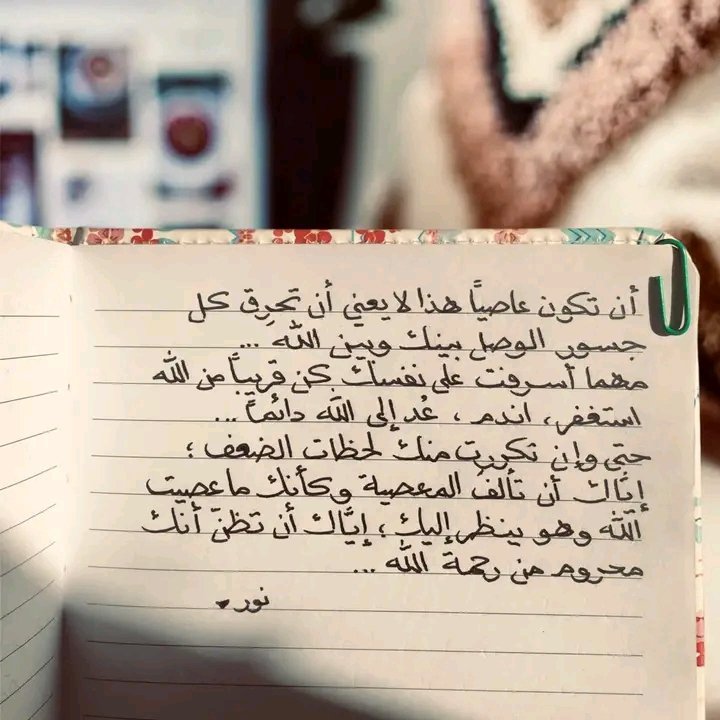 أن تكون عاصياً هذا لا يعني أن تحرِق كل
جسور الوصل بينك وبين الله ...
مهما أسرفت على نفسك كن قريباً من الله
استغفر، اندم، عُد إلى الله دائماً ...
حتى وإن تكررت منك لحظات الضعف؛
إيَّاك أن تألف المعصية وكأنك ما عصيت
اللّه وهو ينظر إليك؛ إيَّاك أن تظنّ أنك
محروم من رحمة الله ...
نور